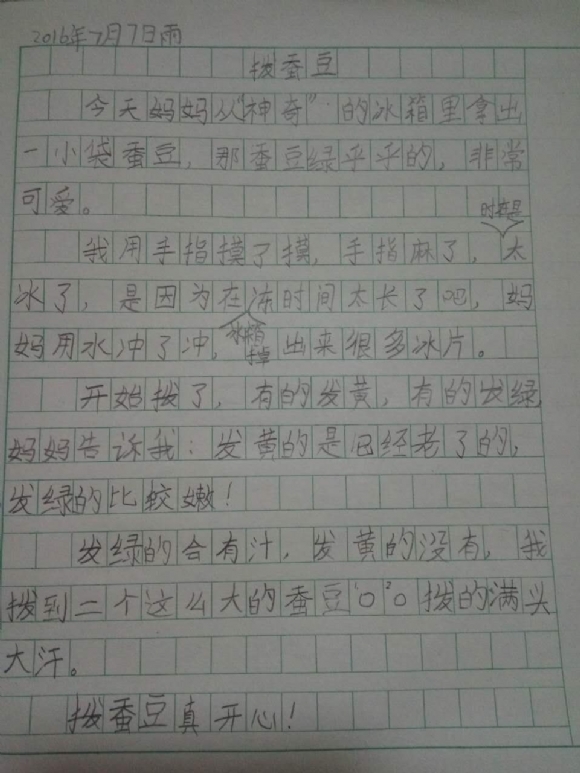 2016年7月7日雨
拨蚕豆
今天妈妈从“神奇”的冰箱里拿出
一小袋蚕豆，那蚕豆绿乎乎的，非常
可爱。
时在是
我用手指摸了摸，手指麻了，太
冰了，是因为在冻时间太长了吧，妈
冰箱
妈用水冲了冲，掉出来很多冰片。
开始拨了，有的发黄，有的发绿，
妈妈告诉我：发黄的是已经老了的，
发绿的比较嫩！
发绿的会有汁，发黄的没有，我
拨到二个这么大的蚕豆“O”O拨的满头
大汗。
拨蚕豆真开心！